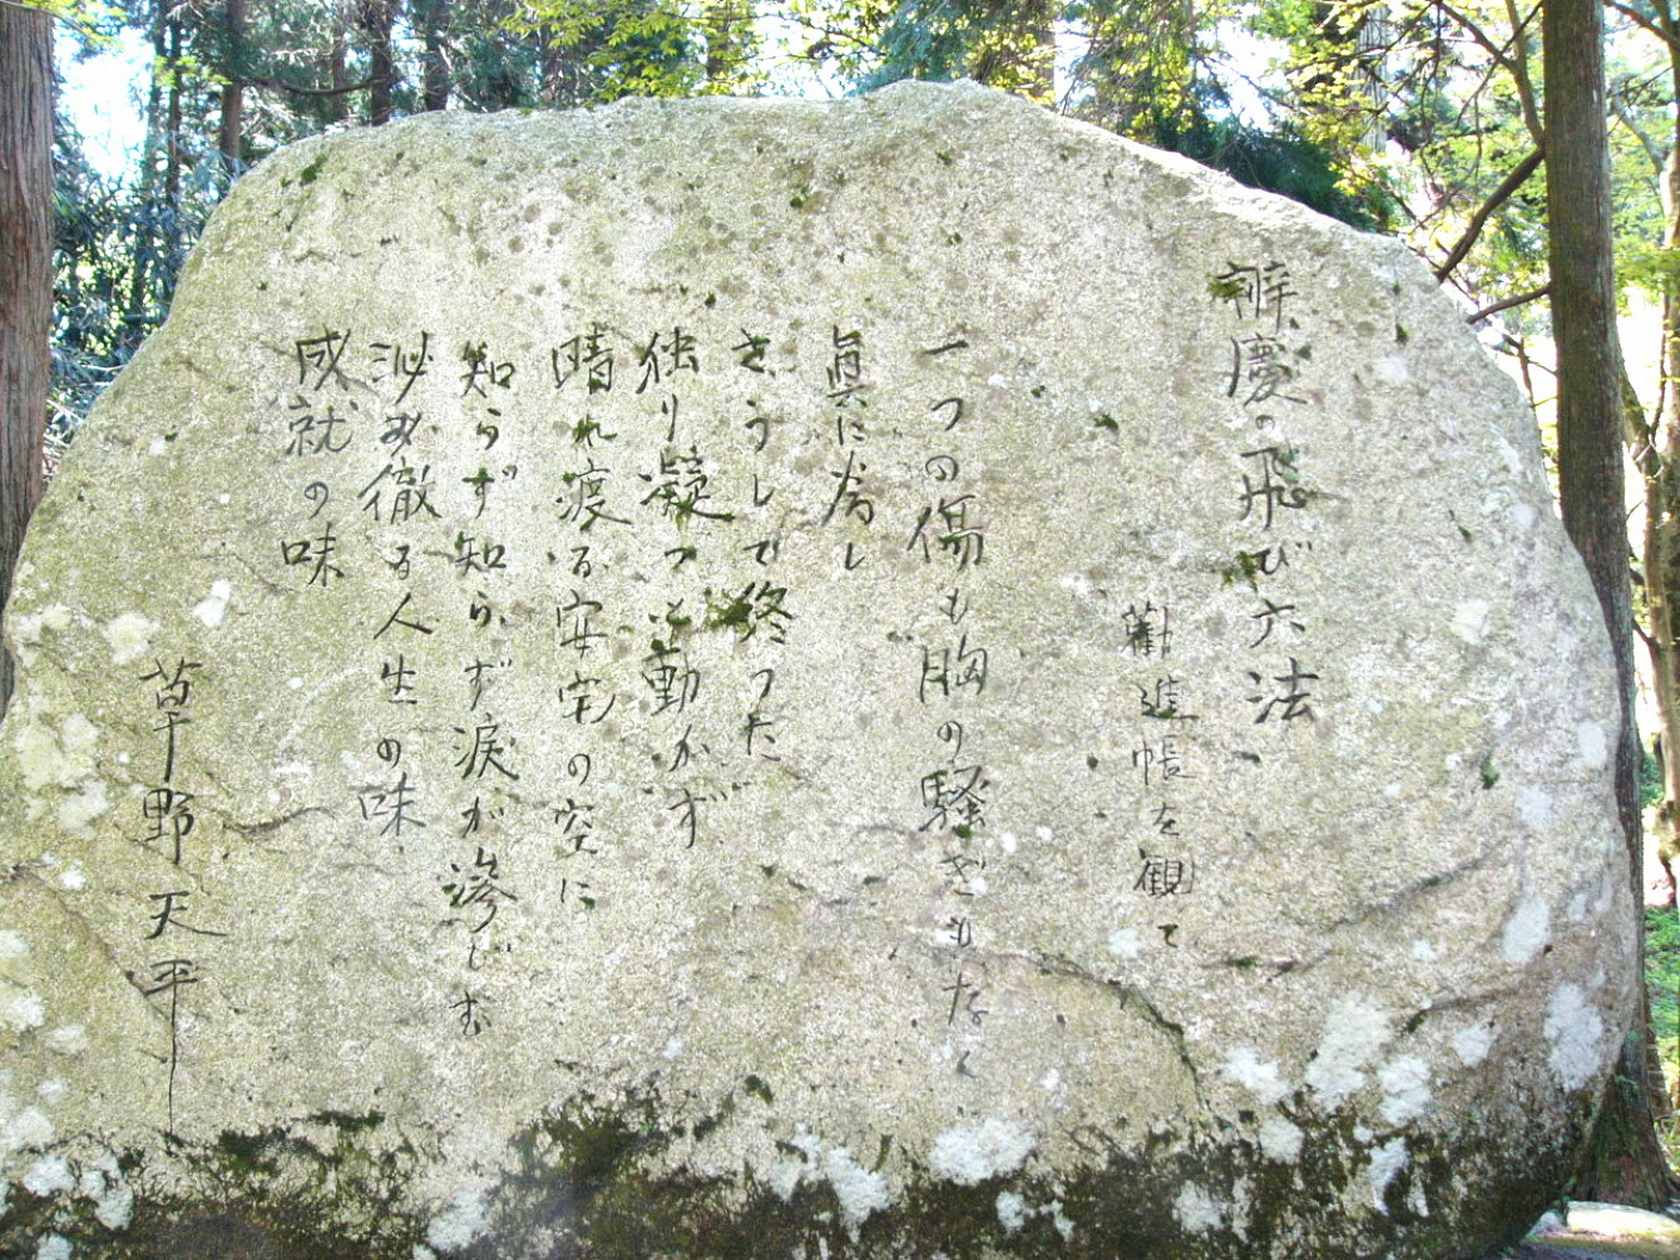 辨慶の飛び六法
勸進帳を観て
一つの傷も胸の騒ぎもなく
眞に為し
さうして終つた
独り凝つと動かず
晴れ渡る安宅の空に
知らず知らず涙が滲じむ
沁み徹る人生の味
成就の味
草野天平